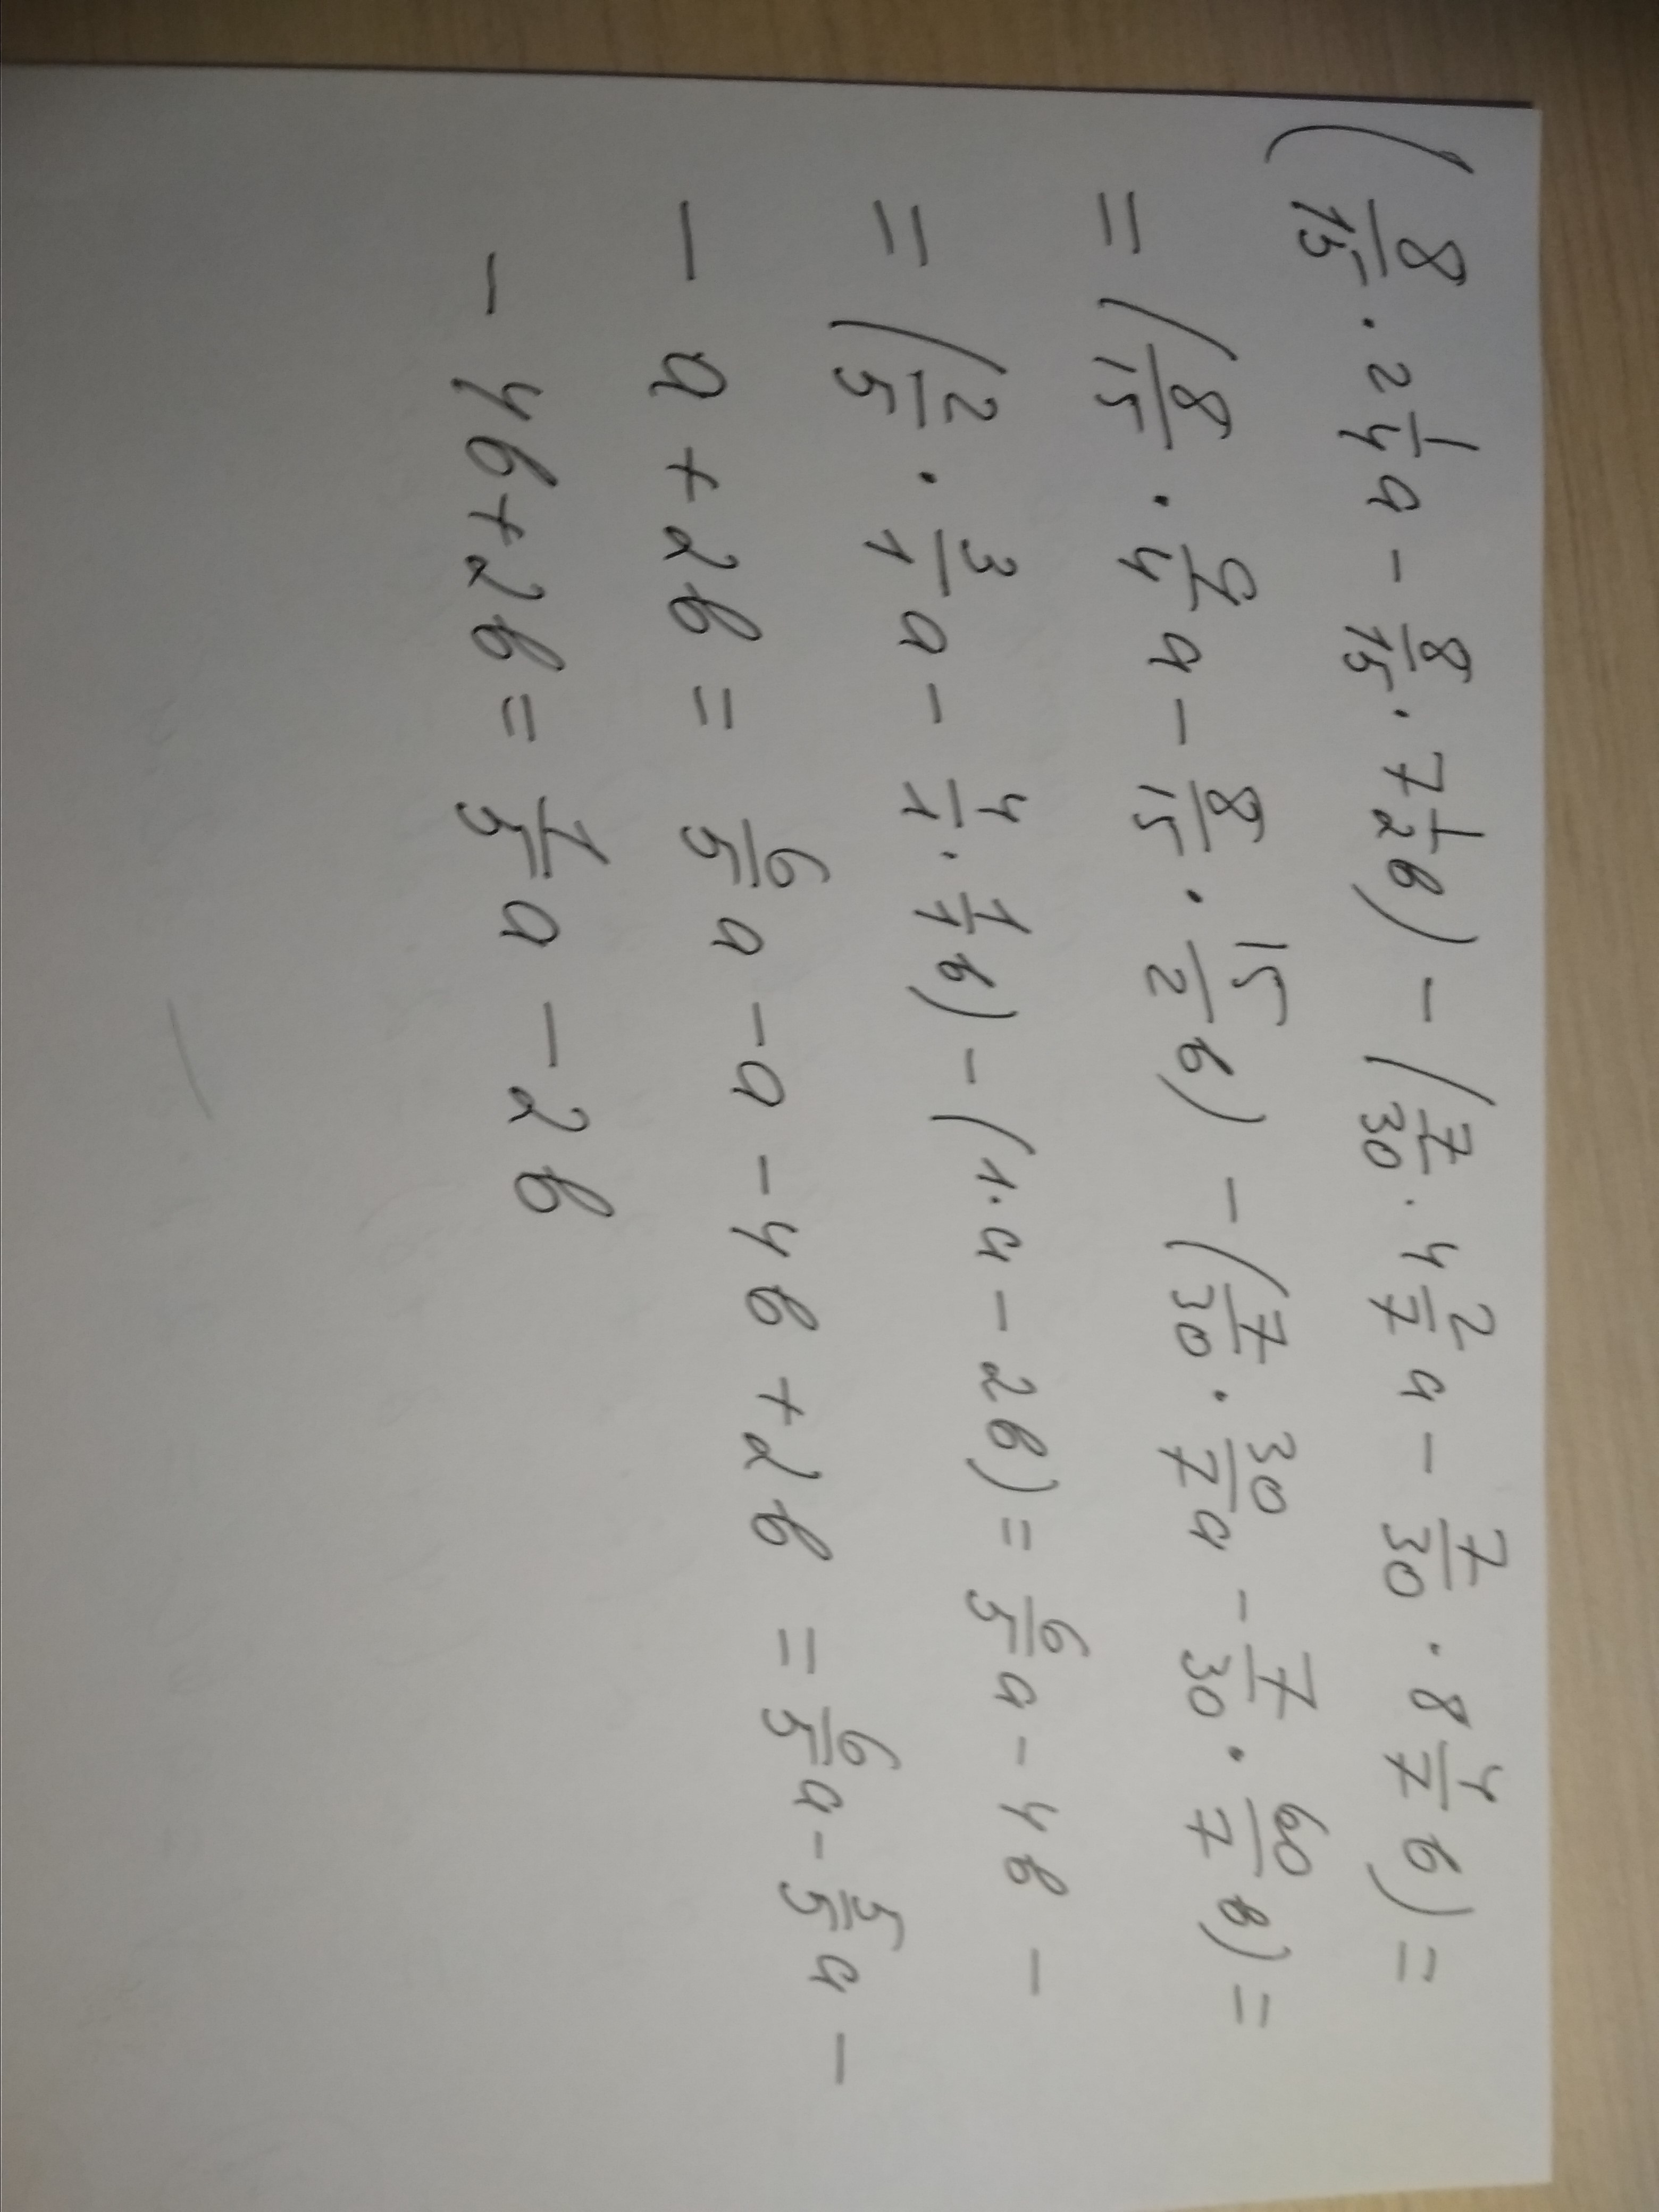 (8/15 · 2 1/4 a - 8/15 · 7 1/2 в) - (7/30 · 4 2/7 a - 7/30 · 8 4/7 в) =
= (8/15 · 9/4 a - 8/15 · 15/2 в) - (7/30 · 30/7 a - 7/30 · 60/7 в) =
= (2/5 · 3/1 a - 4/1 · 1/1 в) - (1·a - 2в) = 6/5 a - 4в -
- a + 2в = 6/5 a - a - 4в + 2в = 6/5 a - 5/5 a -
- 4в + 2в = 1/5 a - 2в